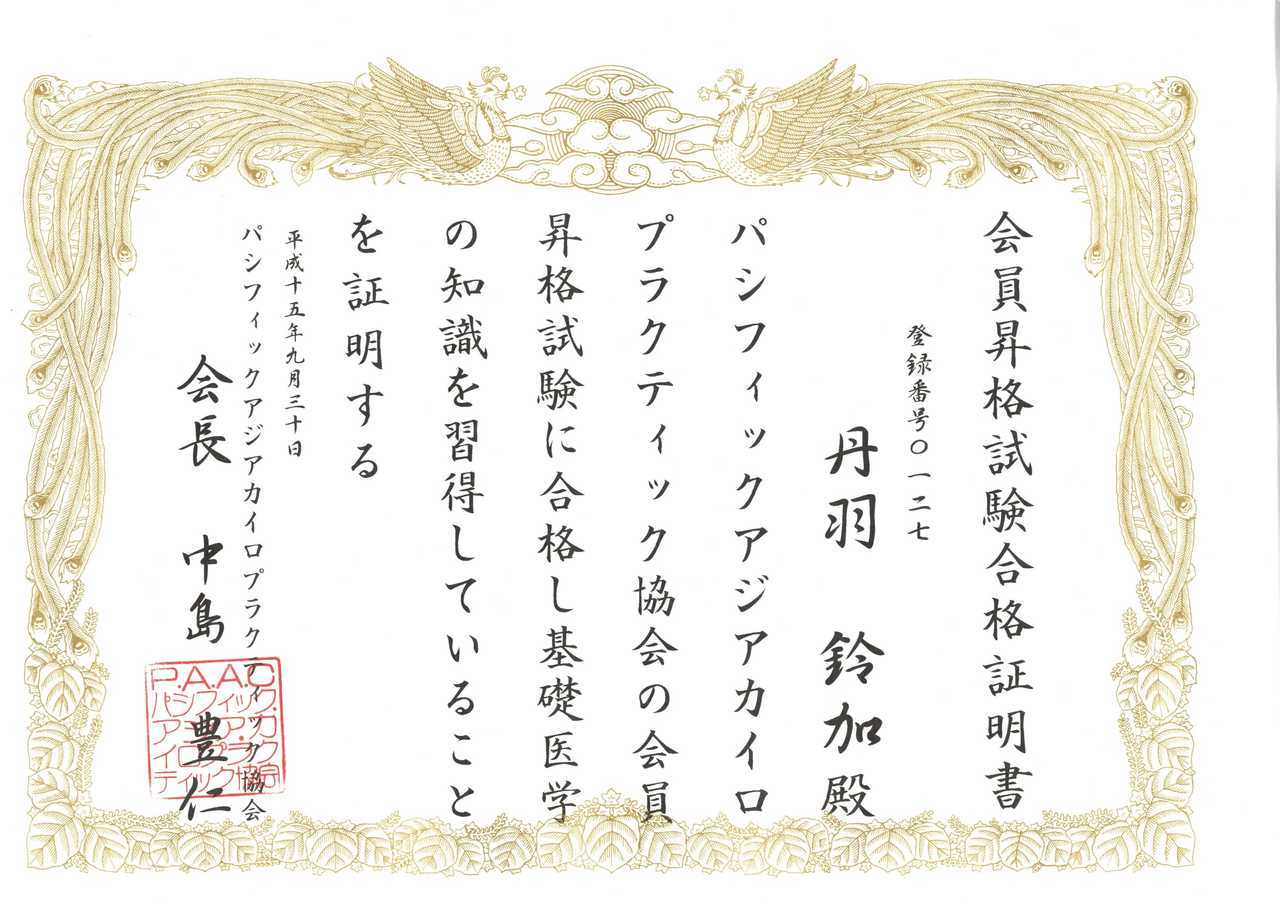 会員昇格試験合格証明書
登録番号〇一二七
丹羽 鈴加殿
パシフィックアジアカイロ
プラクティック協会の会員
昇格試験に合格し基礎医学
の知識を習得していること
を証明する
平成十五年九月三十日
パシフィックアジアカイロプラクティック協会
会長 中島 豊仁
P.A.A.C
パシフィック.
アジア.カ
イロプラク
ティック協会